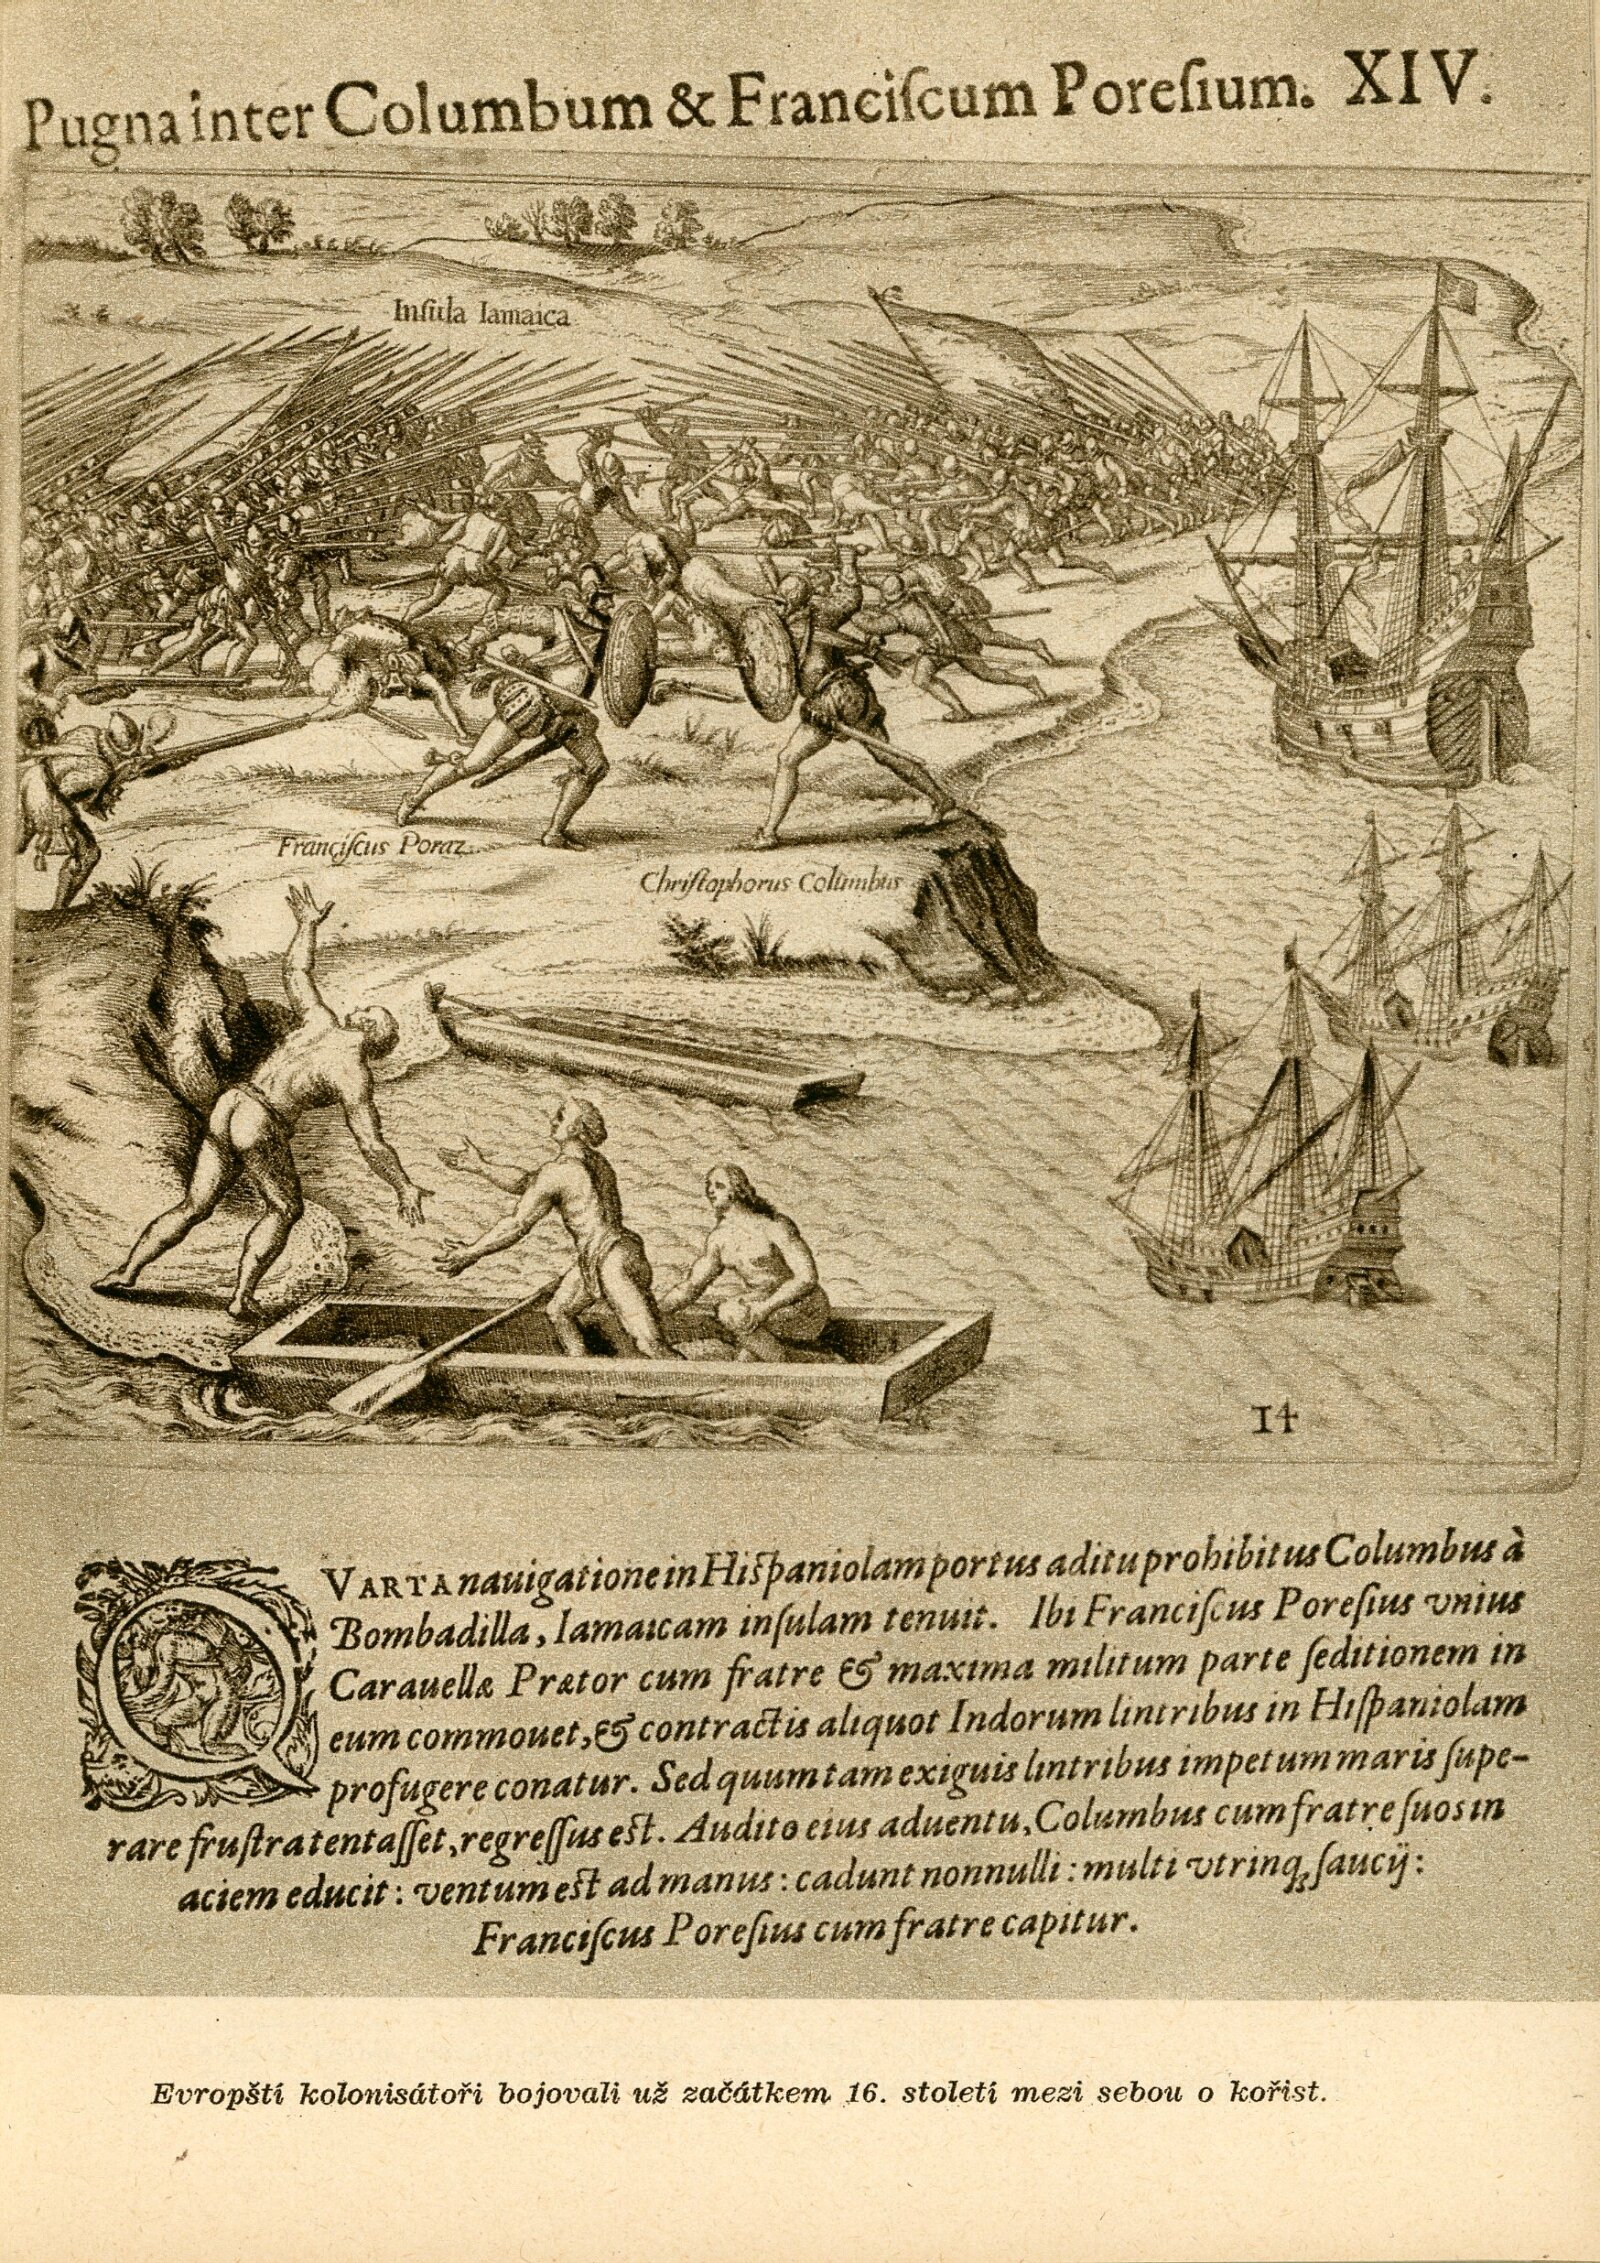 Pugna inter Columbum & Franciſcum Poreſium. XIV.
Inſula Iamaica
Franciſcus Poraz.
Chriſtophorus Columbus
14
QVARTA nauigatione in Hiſpaniolam portus aditu prohibitus Columbus à
Bombadilla, Iamaicam inſulam tenuit. Ibi Franciſcus Poreſius vnius
Carauellæ Prætor cum fratre & maxima militum parte ſeditionem in
eum commouet, & contractis aliquot Indorum lintribus in Hiſpaniolam
profugere conatur. Sed quum tam exiguis lintribus impetum maris ſupe-
rare fruſtra tentaſſet, regreſſus eſt. Audito eius aduentu, Columbus cum fratre ſuos in
aciem educit: ventum eſt ad manus: cadunt nonnulli: multi vtrinq; ſaucij:
Franciſcus Poreſius cum fratre capitur.
Evropští kolonisátoři bojovali už začátkem 16. století mezi sebou o kořist.